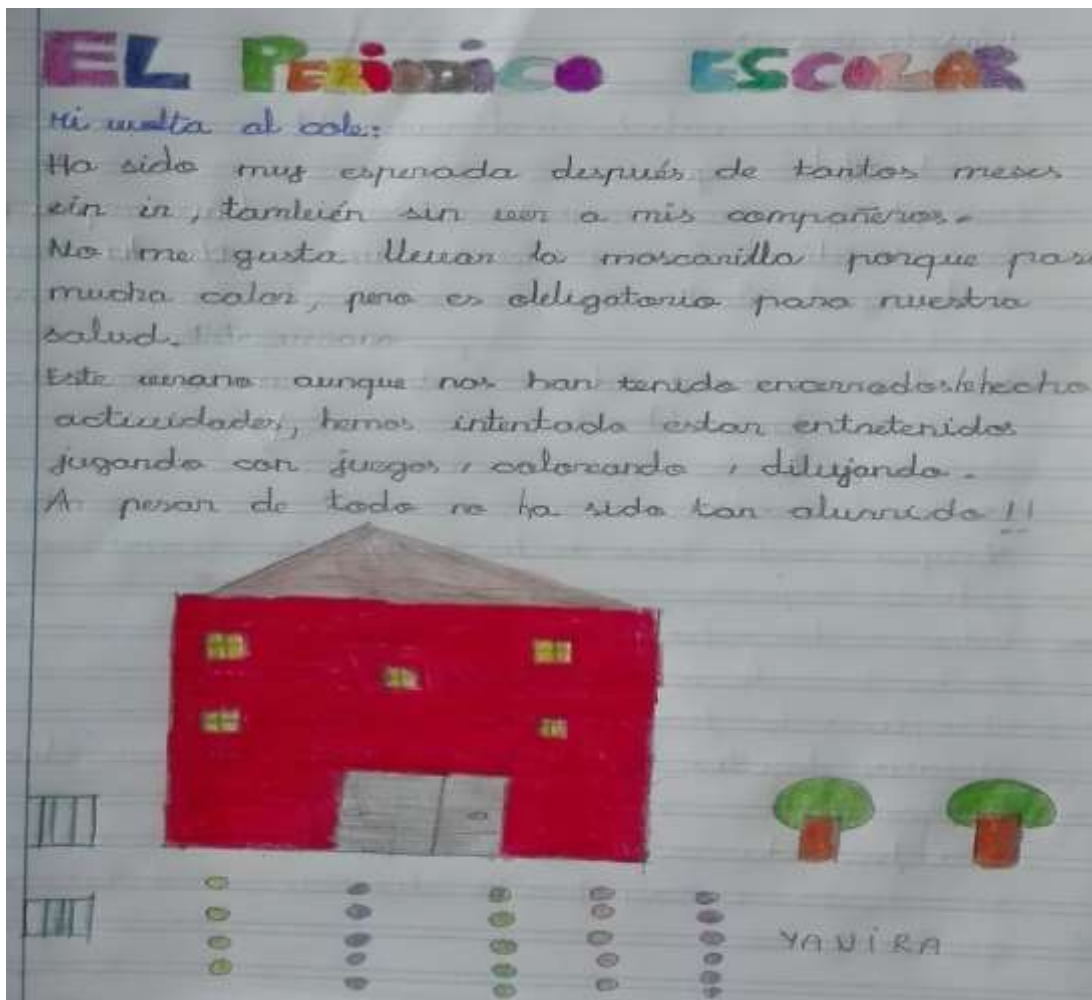 EL PERiODiCO ESCOLAR
Mi vuelta al cole:
Ha sido muy esperada después de tantos meses
sin ir, también sin ver a mis compañeros.
No me gusta llevar la mascarilla porque paso
mucha calor, pero es obligatorio para nuestra
salud.
Este verano aunque nos han tenido encerrados
actividades, hemos intentado estar entretenidos
jugando con juegos, coloreando, dibujando.
A pesar de todo no ha sido tan aburrido!!
YANiRA